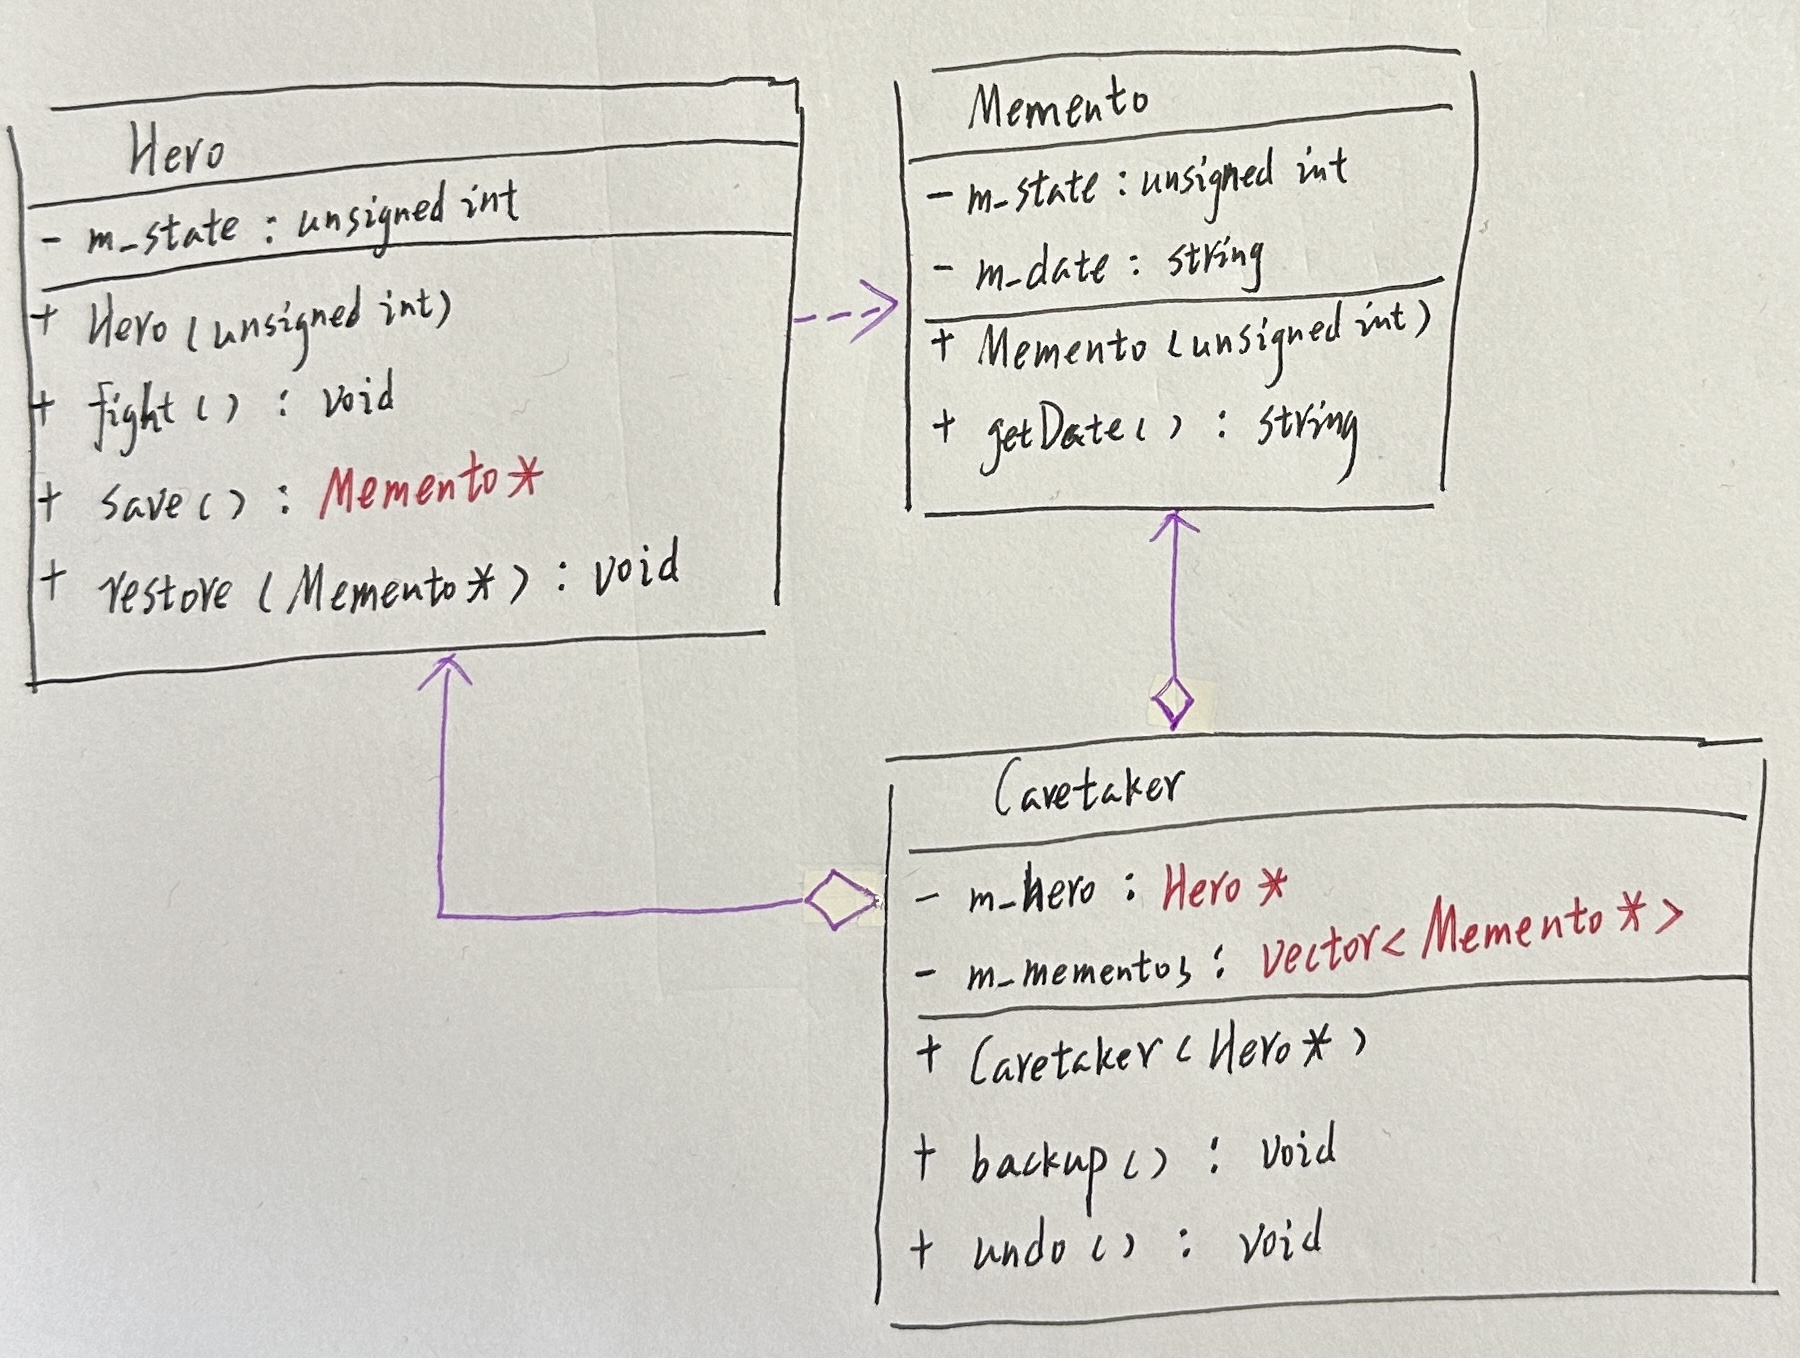 Hero
- m_state : unsigned int
+ Hero (unsigned int)
+ fight () : void
+ save () : Memento*
+ restore (Memento*) : void
Memento
- m_state : unsigned int
- m_date : string
+ Memento (unsigned int)
+ getDate () : string
Caretaker
- m_hero : Hero*
- m_mementos : vector<Memento*>
+ Caretaker (Hero*)
+ backup () : void
+ undo () : void